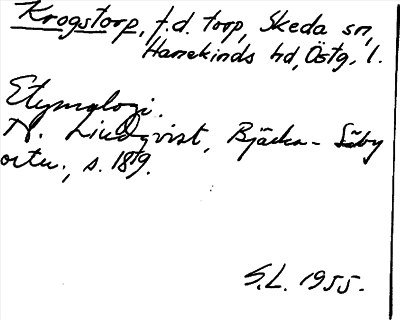 Krogstorp, f.d. torp, Skeda sn,
Hanekinds hd, Östg. l.
Etymologi.
N. Lindqvist, Bjärka-Säby
ortn., s. 189.
S.L. 1955.